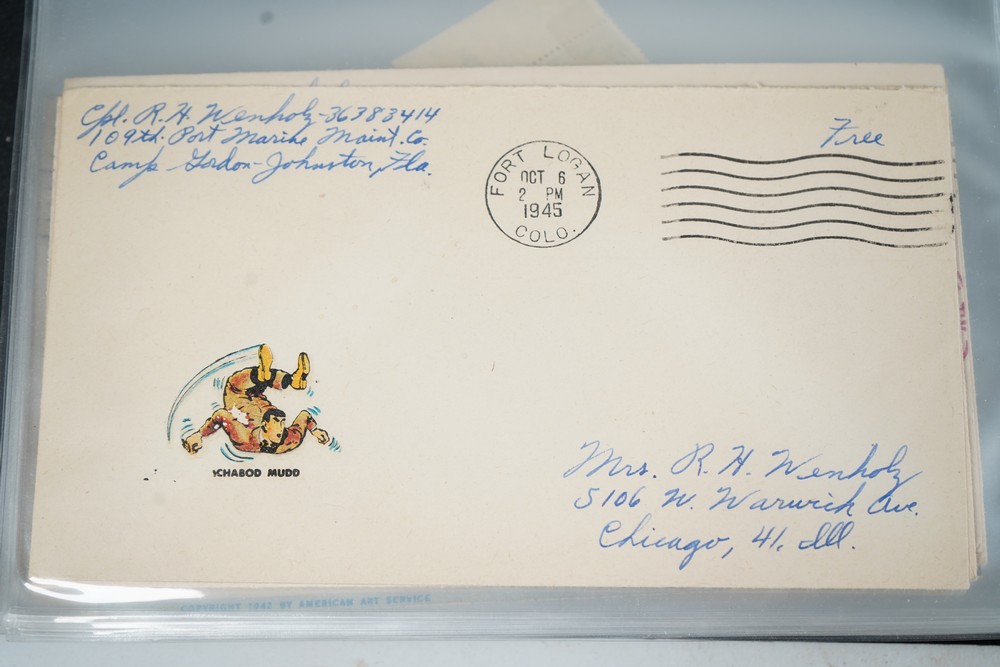 Cpl. R. H. Wenholz-36383414
109th. Port Marine Maint. Co.
Camp Gordon-Johnston, Fla.
Free
FORT LOGAN
OCT 6
2 PM
1945
COLO.
ICHABOD MUDD
Mrs. R. H. Wenholz
5106 W. Warwick Ave.
Chicago, 41, Ill.
COPYRIGHT 1942 BY AMERICAN ART SERVICE